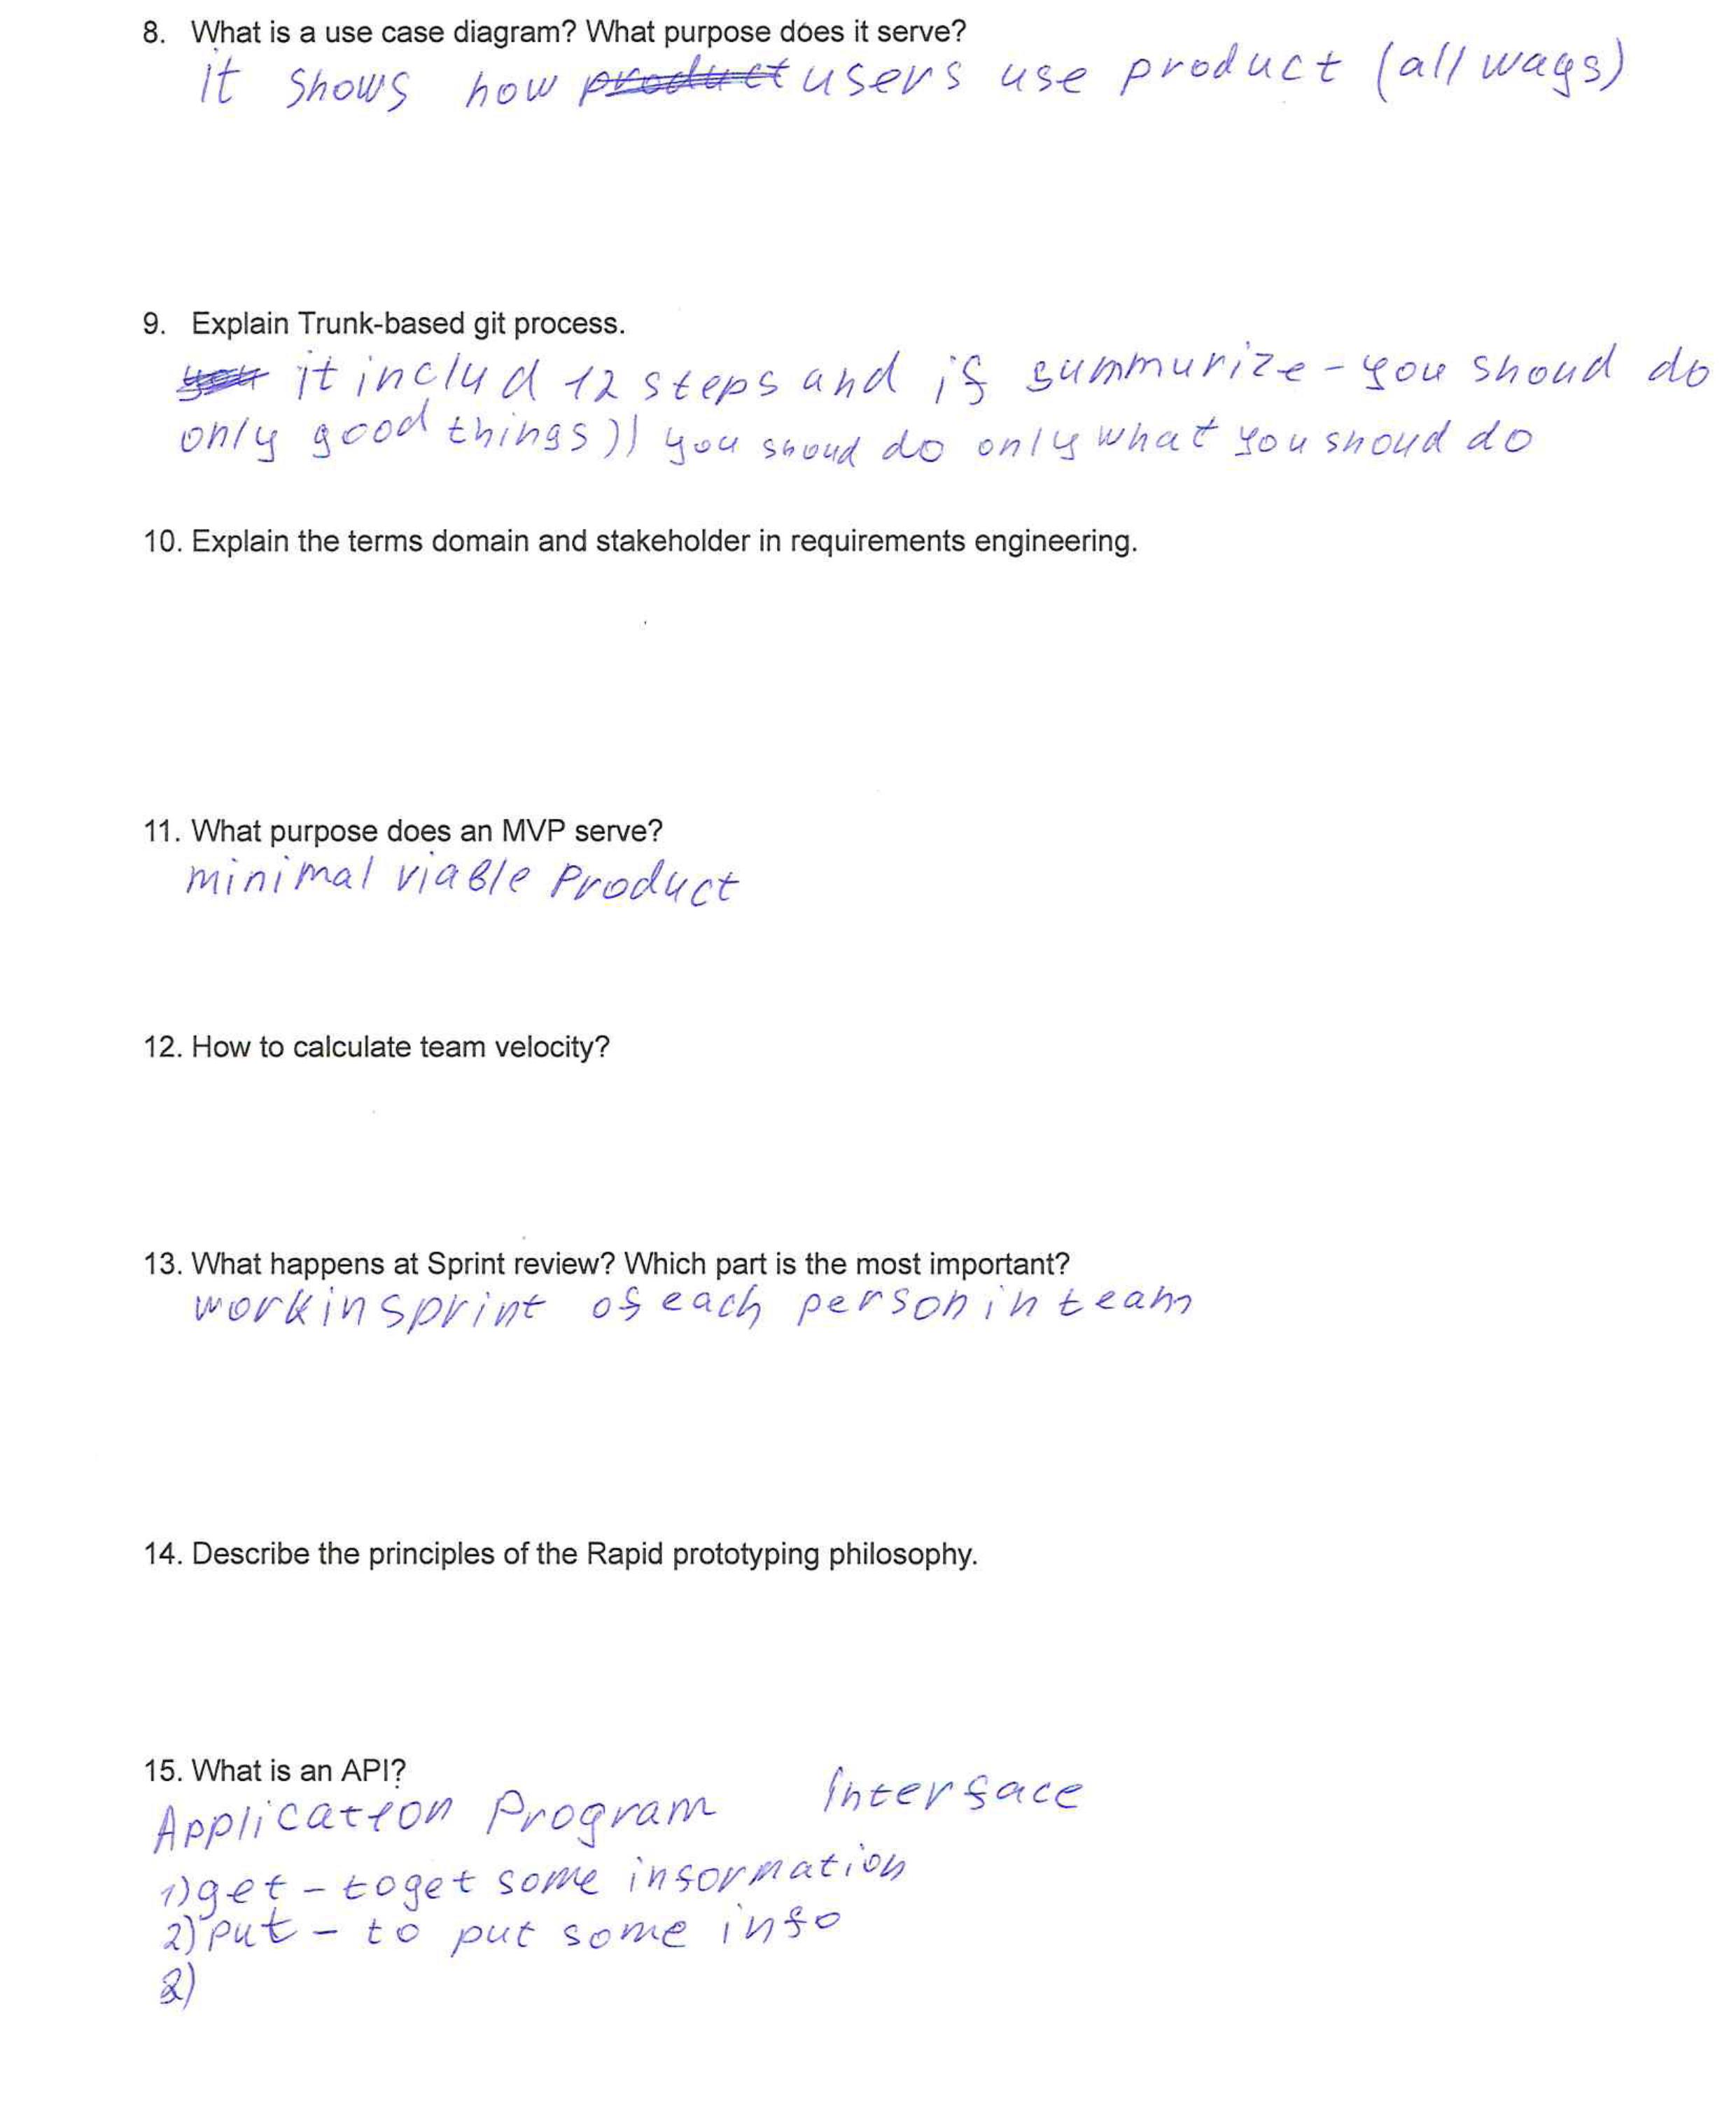 8. What is a use case diagram? What purpose does it serve?
it shows how product users use product (all ways)
9. Explain Trunk-based git process.
it includ 12 steps and if summurize - you shoud do
only good things)) you shoud do only what you shoud do
10. Explain the terms domain and stakeholder in requirements engineering.
11. What purpose does an MVP serve?
minimal viable Product
12. How to calculate team velocity?
13. What happens at Sprint review? Which part is the most important?
work in sprint of each person in team
14. Describe the principles of the Rapid prototyping philosophy.
15. What is an API?
Application Program Interface
1) get - to get some information
2) put - to put some info
2)